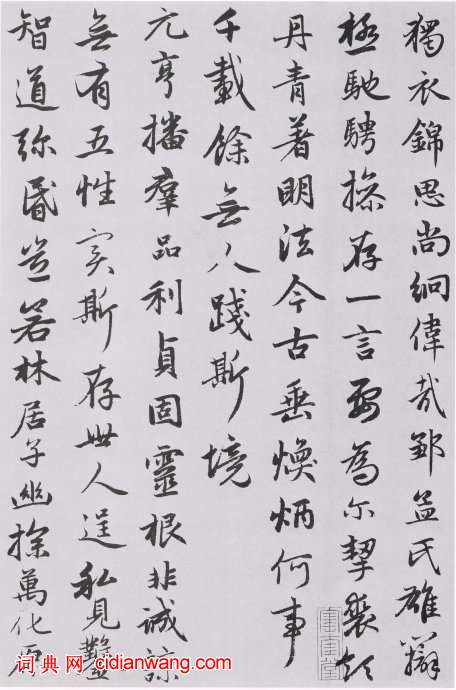 獨衣錦思尚絅偉哉鄒孟氏雄辯
極馳騁操存一言要為尓挈裘領
丹青著明法今古垂煥炳何事
千載餘無人踐斯境
元亨播羣品利貞固靈根非誠諒
無有五性實斯存世人逞私見鑿
智道弥昏豈若林居子幽探萬化原
词典网 cidianwang.com